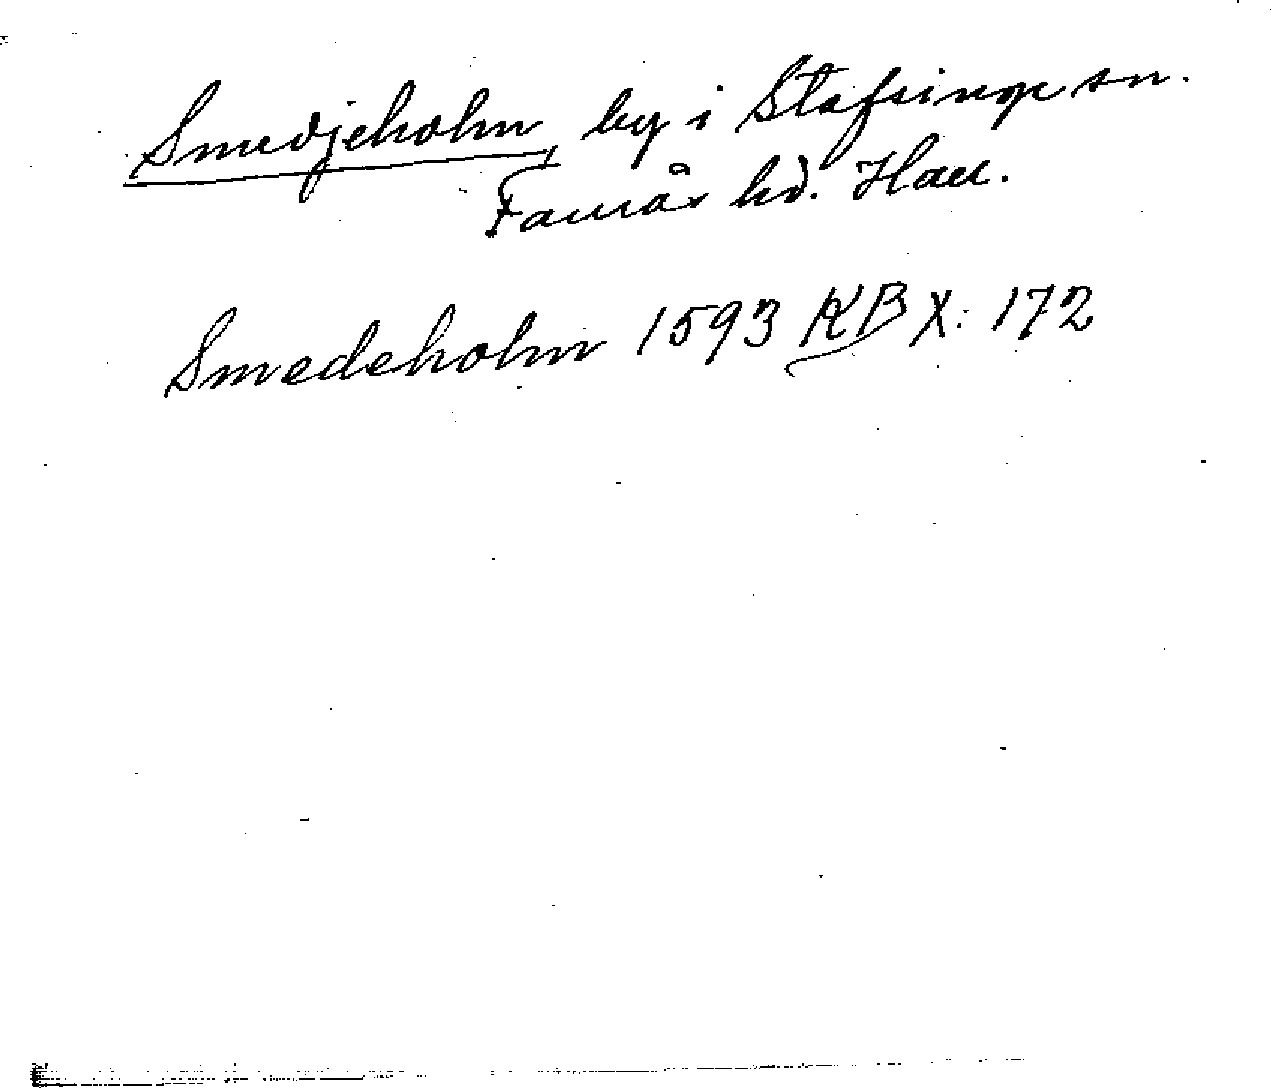 Smedjeholm, by i Stafsinge sn.
Faurås hd. Hall.
Smedeholm 1593 KB X: 172